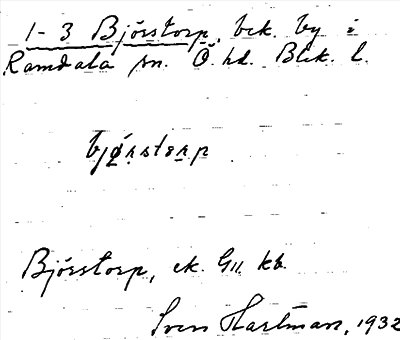 1-3 Björstorp, bek. by i
Ramdala sn. Ö. hd. Blek. l.
bjørstorp
Björstorp, ek. G11 kb.
Sven Hartman, 1932